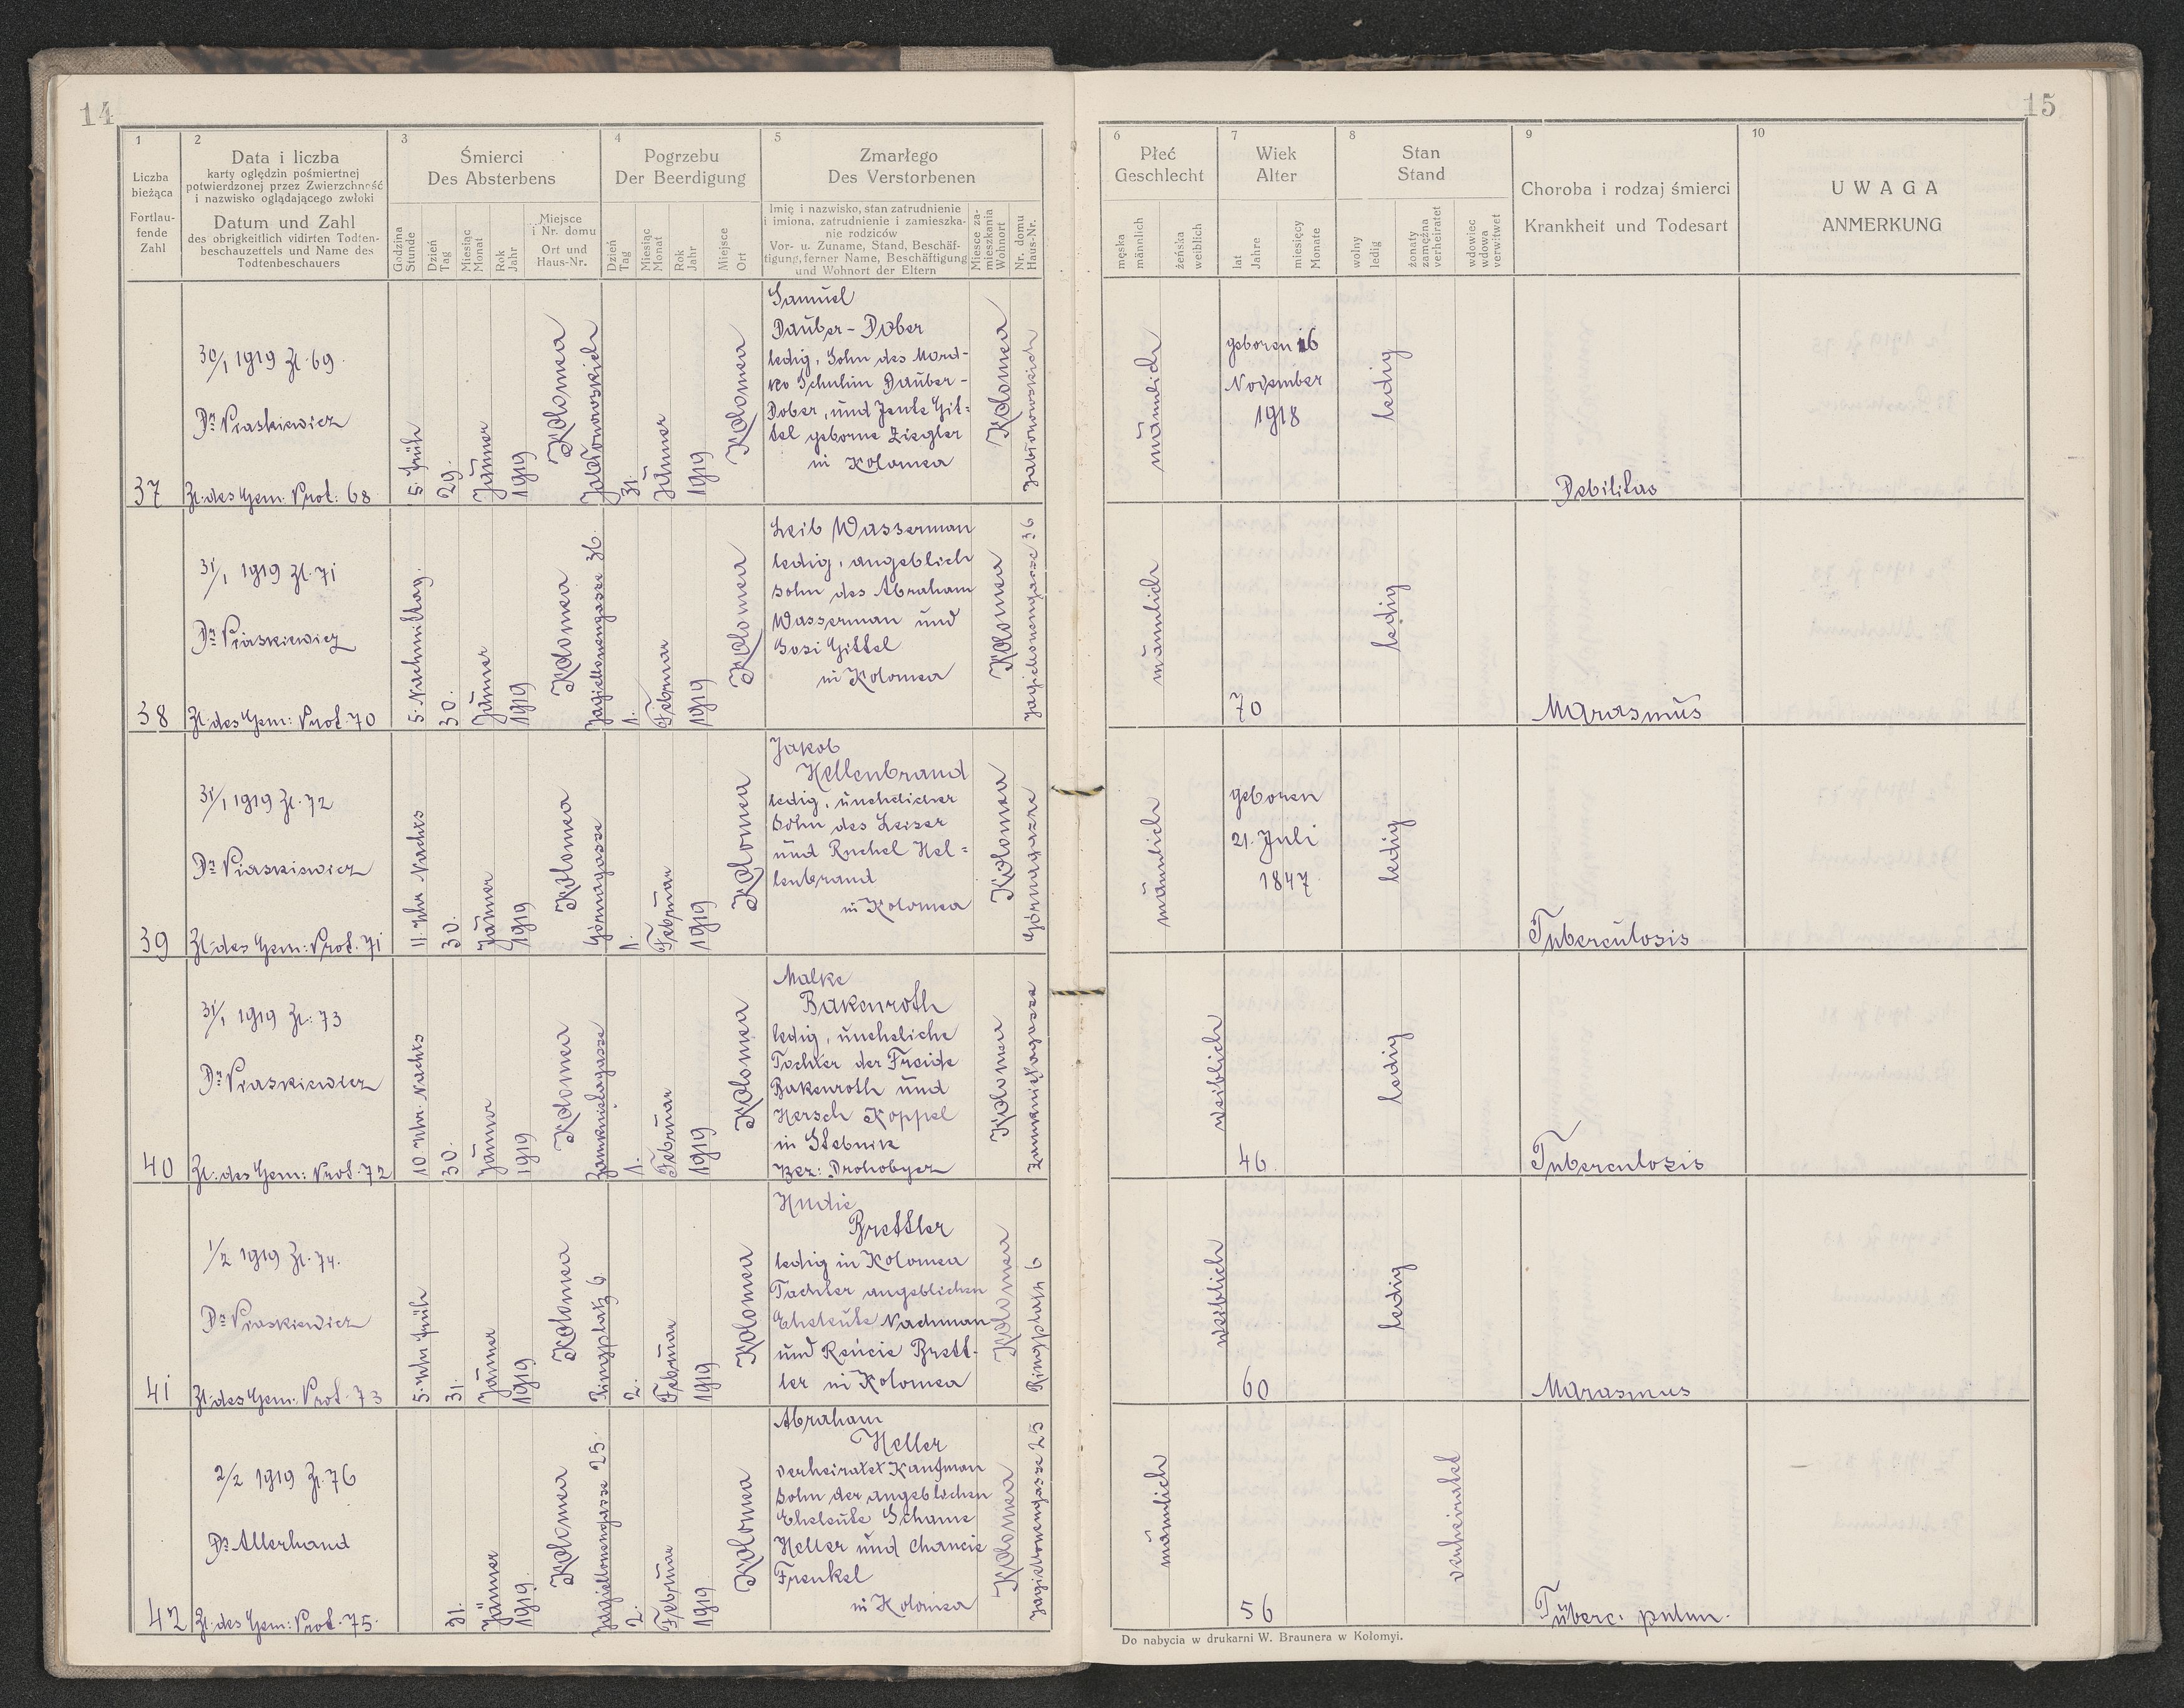 14
1
Liczba
bieżąca
Fortlau-
fende
Zahl
2
Data i liczba
karty oględzin pośmiertnej
potwierdzonej przez Zwierzchność
i nazwisko oglądającego zwłoki
Datum und Zahl
des obrigkeitlich vidirten Todten-
beschauzettels und Name des
Todtenbeschauers
3
Śmierci
Des Absterbens
Godzina
Stunde
Dzień
Tag
Miesiąc
Monat
Rok
Jahr
Miejsce
i Nr. domu
Ort und
Haus-Nr.
4
Pogrzebu
Der Beerdigung
Dzień
Tag
Miesiąc
Monat
Rok
Jahr
Miejsce
Ort
5
Zmarłego
Des Verstorbenen
Imię i nazwisko, stan zatrudnienie
i imiona, zatrudnienie i zamieszka-
nie rodziców
Vor- u. Zuname, Stand, Beschäf-
tigung, ferner Name, Beschäftigung
und Wohnort der Eltern
Miesce za-
mieszkania
Wohnort
Nr. domu
Haus-Nr.
37
30/1 1919 Zl. 69.
Dr Piaskiewicz
Zl: des Gem. Prot: 68
5. früh
29.
Jänner
1919
Kolomea
31.
Jänner
1919
Kolomea
Samuel
Dauber - Dober
ledig, Sohn des Mord-
ko Schulim Dauber -
Dober, und Jente Git=
tel geborne Ziegler
in Kolomea
Kolomea
38
31/1 1919 Zl. 71
Dr Piaskiewicz
Zl: des Gem: Prot. 70
5. Nachmittag.
30.
Jänner
1919
Kolomea
Jagiellonengasse 36.
1.
Februar
1919
Kolomea
Leib Wasserman
ledig, angeblich
sohn des Abraham
Wasserman und
Sosi Gittel
in Kolomea
Kolomea
Jagiellonengasse 36
39
31/1 1919 Zl. 72
Dr Piaskiewicz
Zl: des Gem: Prot. 71
11. Uhr Nachts
30.
Jänner
1919
Kolomea
Górnagasse
1.
Februar
1919
Kolomea
Jakob
Hellenbrand
ledig, unehelicher
sohn des Leiser
und Ruchel Hel=
lenbrand
in Kolomea
Kolomea
Górnagasse
40
31/1 1919 Zl: 73
Dr Piaskiewicz
Zl: des Gem: Prot. 72
10 Uhr. Nachts
30.
Jänner
1919
Kolomea
1.
Februar
1919
Kolomea
Malke
Bakenroth
ledig, uneheliche
Tochter der Freide
Bakenroth und
Hersch Koppel
in Stebnik
Bez: Drohobycz
Kolomea
41
1/2 1919 Zl. 74.
Dr Piaskiewicz
Zl: des Gem: Prot. 73
5. Uhr früh
31.
Jänner
1919
Kolomea
Ringplatz 6.
2.
Februar
1919
Kolomea
Hudie
Brettler
ledig in Kolomea
Tochter angeblichen
Eheleute Nachman
und Reisie Brett-
ler in Kolomea
Kolomea
Ringplatz 6
42
2/2 1919 Zl. 76
Dr Allerhand
Zl: des Gem: Prot. 75.
31.
Jänner
1919.
Kolomea
Jagiellonengasse 25.
2.
Februar
1919
Kolomea
Abraham
Heller
verheiratet Kaufman
sohn der angeblichen
Eheleute Schame
Heller und Chancie
Frenkel
in Kolomea
Kolomea
Jagiellonengasse 25
15
6
Płeć
Geschlecht
męska
männlich
żeńska
weiblich
7
Wiek
Alter
lat
Jahre
miesięcy
Monate
8
Stan
Stand
wolny
ledig
żonaty
zamężna
verheiratet
wdowiec
wdowa
verwitwet
9
Choroba i rodzaj śmierci
Krankheit und Todesart
10
UWAGA
ANMERKUNG
männlich
geboren 16
November
1918
ledig
Debilitas
männlich
70
ledig
Marasmus
männlich
geboren
21. Juli
1847
ledig
Tuberculosis
weiblich
46.
ledig
Tuberculosis
weiblich
60
ledig
Marasmus
männlich
56
verheiratet
Tuberc: pulm.
Do nabycia w drukarni W. Braunera w Kołomyi.